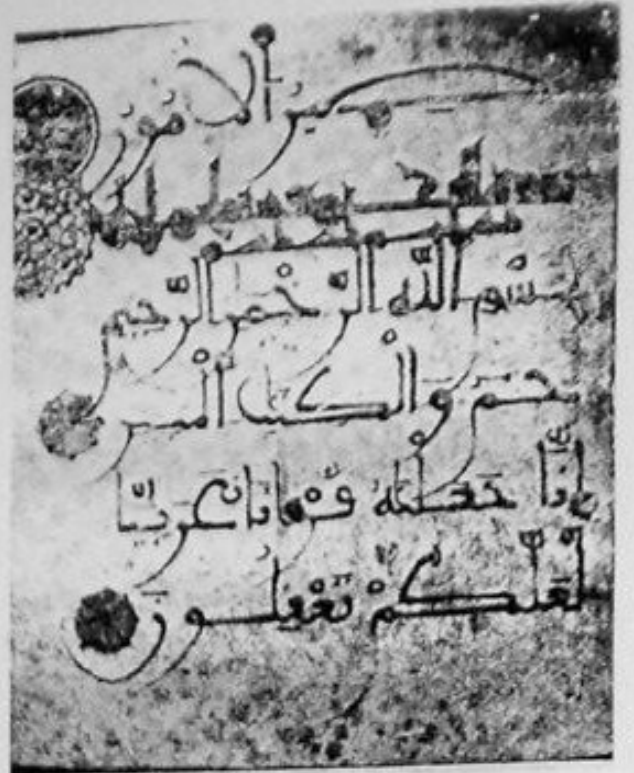 تصير الامور
بِسْمِ اللَّهِ الرَّحْمٰنِ الرَّحِيمِ
حم وَالْكتب الْمبين
إِنَّا جَعَلْنَهُ قُرْءَانًا عَرَبِيًّا
لَعَلَّكُمْ تَعْقِلُونَ